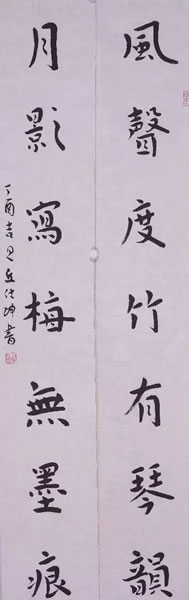 風聲度竹有琴韻
月影寫梅無墨痕
丁酉吉日丘仕坤書